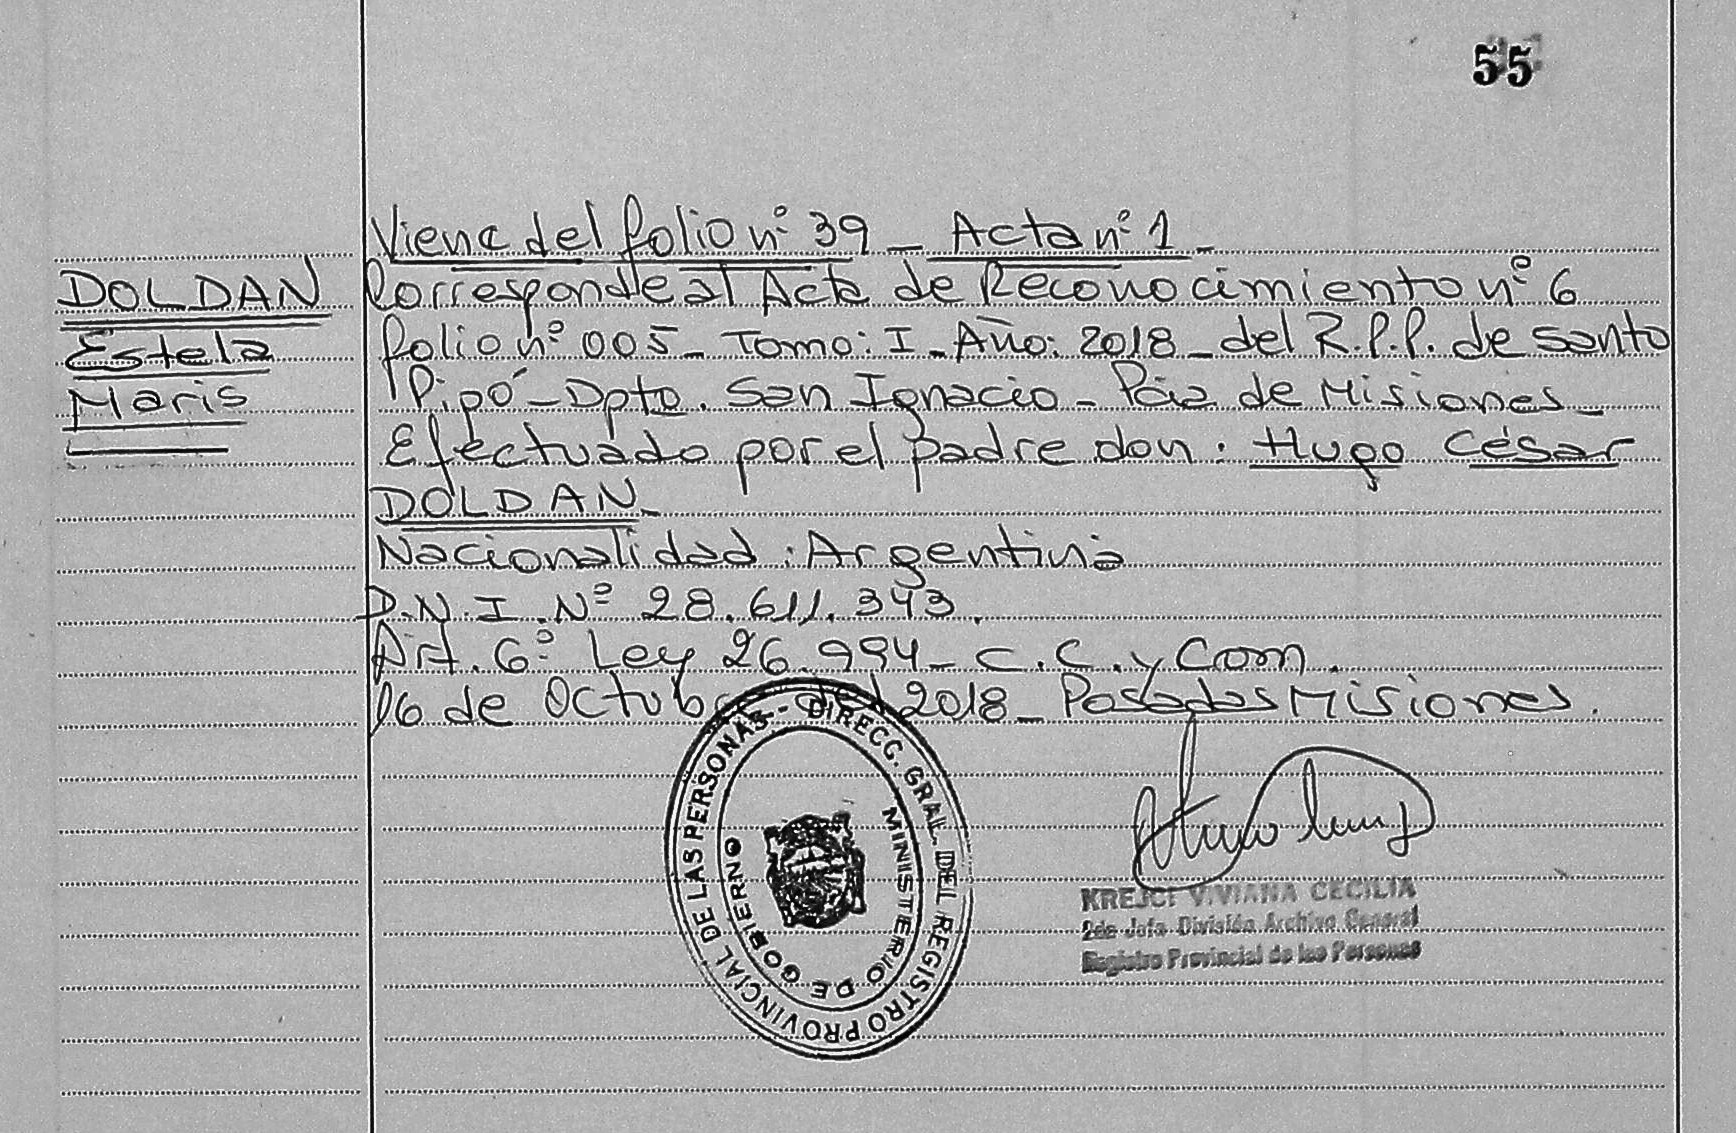 55
Viene del folio nº 39 - Acta nº 1 -
DOLDAN
Estela
Maris
Corresponde al Acta de Reconocimiento nº 6
folio nº 005 - Tomo: I - Año: 2018 - del R.P.P. de Santo
Pipó - Dpto. San Ignacio - Pcia de Misiones -
Efectuado por el padre don: Hugo César
DOLDAN -
Nacionalidad: Argentina
D.N.I. Nº 28.611.343.
Art. 6º Ley 26.994 - C.C. y Com.
16 de Octubre del 2018 - Posadas Misiones.
DIRECC. GRAL. DEL REGISTRO PROVINCIAL DE LAS PERSONAS -
MINISTERIO DE GOBIERNO
KREJCI VIVIANA CECILIA
2da Jefa División Archivo General
Registro Provincial de las Personas